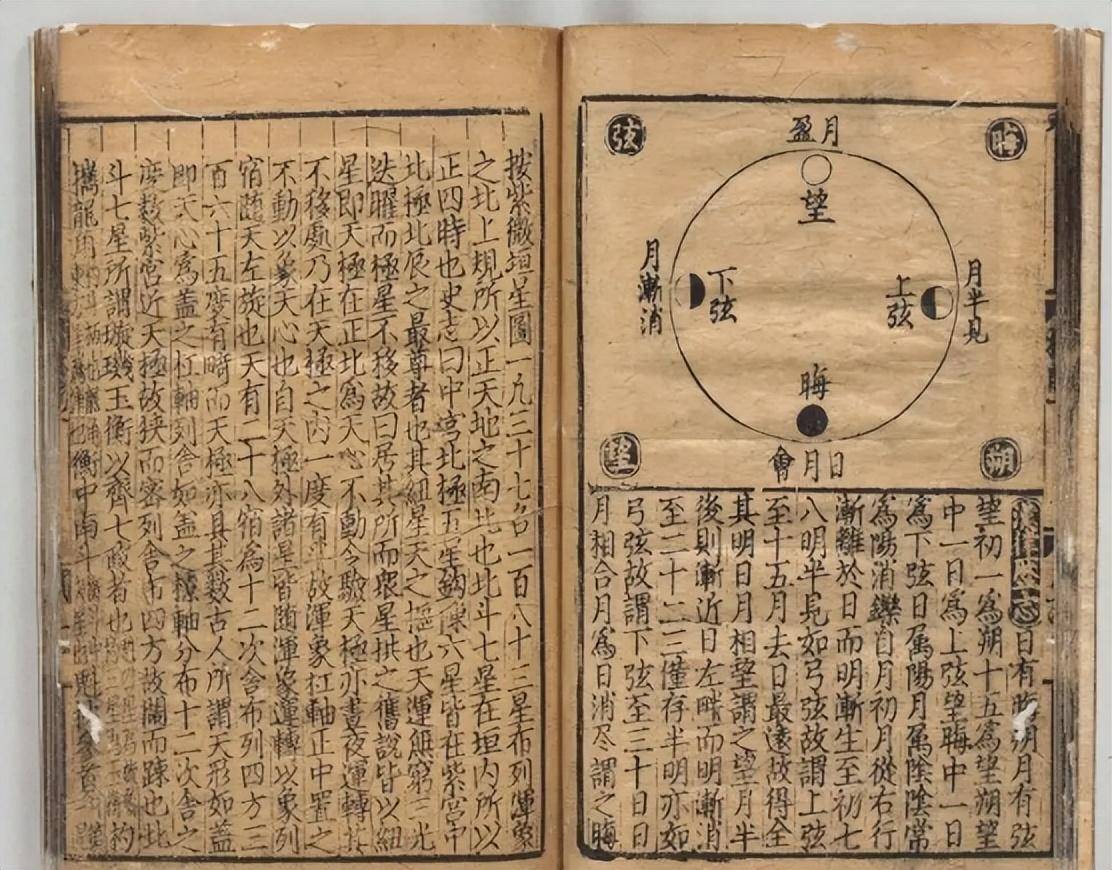 晦
弦
朔
望
月盈
望
月半見
上弦
下弦
月漸消
晦
日月會
日有晦朔月有弦
望初一為朔十五為望朔望
中一日為上弦望晦中一日
為下弦日屬陽月屬陰陰常
為陽消鑠自月初月從右行
漸離於日而明漸生至初七
八明半見如弓弦故謂上弦
至十五月去日最遠故得全
其明日月相望謂之望月半
後則漸近日左畔而明漸消
至二十二三僅存半明亦如
弓弦故謂下弦至三十日日
月相合月為日消尽謂之晦
按紫微垣星圖一凡三十七名一百八十三星布列渾象
之北上規所以正天地之南北也北斗七星在垣內所以
正四時也史志曰中宮北極五星鈎陳六星皆在紫宮中
北極北辰之最尊者也其紐星天之樞也天運無窮三光
迭曜而極星不移故曰居其所而眾星拱之舊說皆以紐
星即天極在正北為天心不動今驗天極亦晝夜運轉其
不移處乃在天極之內一度有半故渾象杠軸正中置之
不動以象天心也自天極外諸星皆隨渾象運轉以象列
宿隨天左旋也天有二十八宿為十二次舍布列四方三
百六十五度有畸而天極亦具其數古人所謂天形如蓋
即天心為蓋之杠軸列舍如蓋之橑軸分布十二次舍之
度數紫宮近天極故狹而密列舍布四方故闊而踈也北
斗七星所謂璇璣玉衡以齊七政者也
攜龍角
衡中南斗
魁枕參首